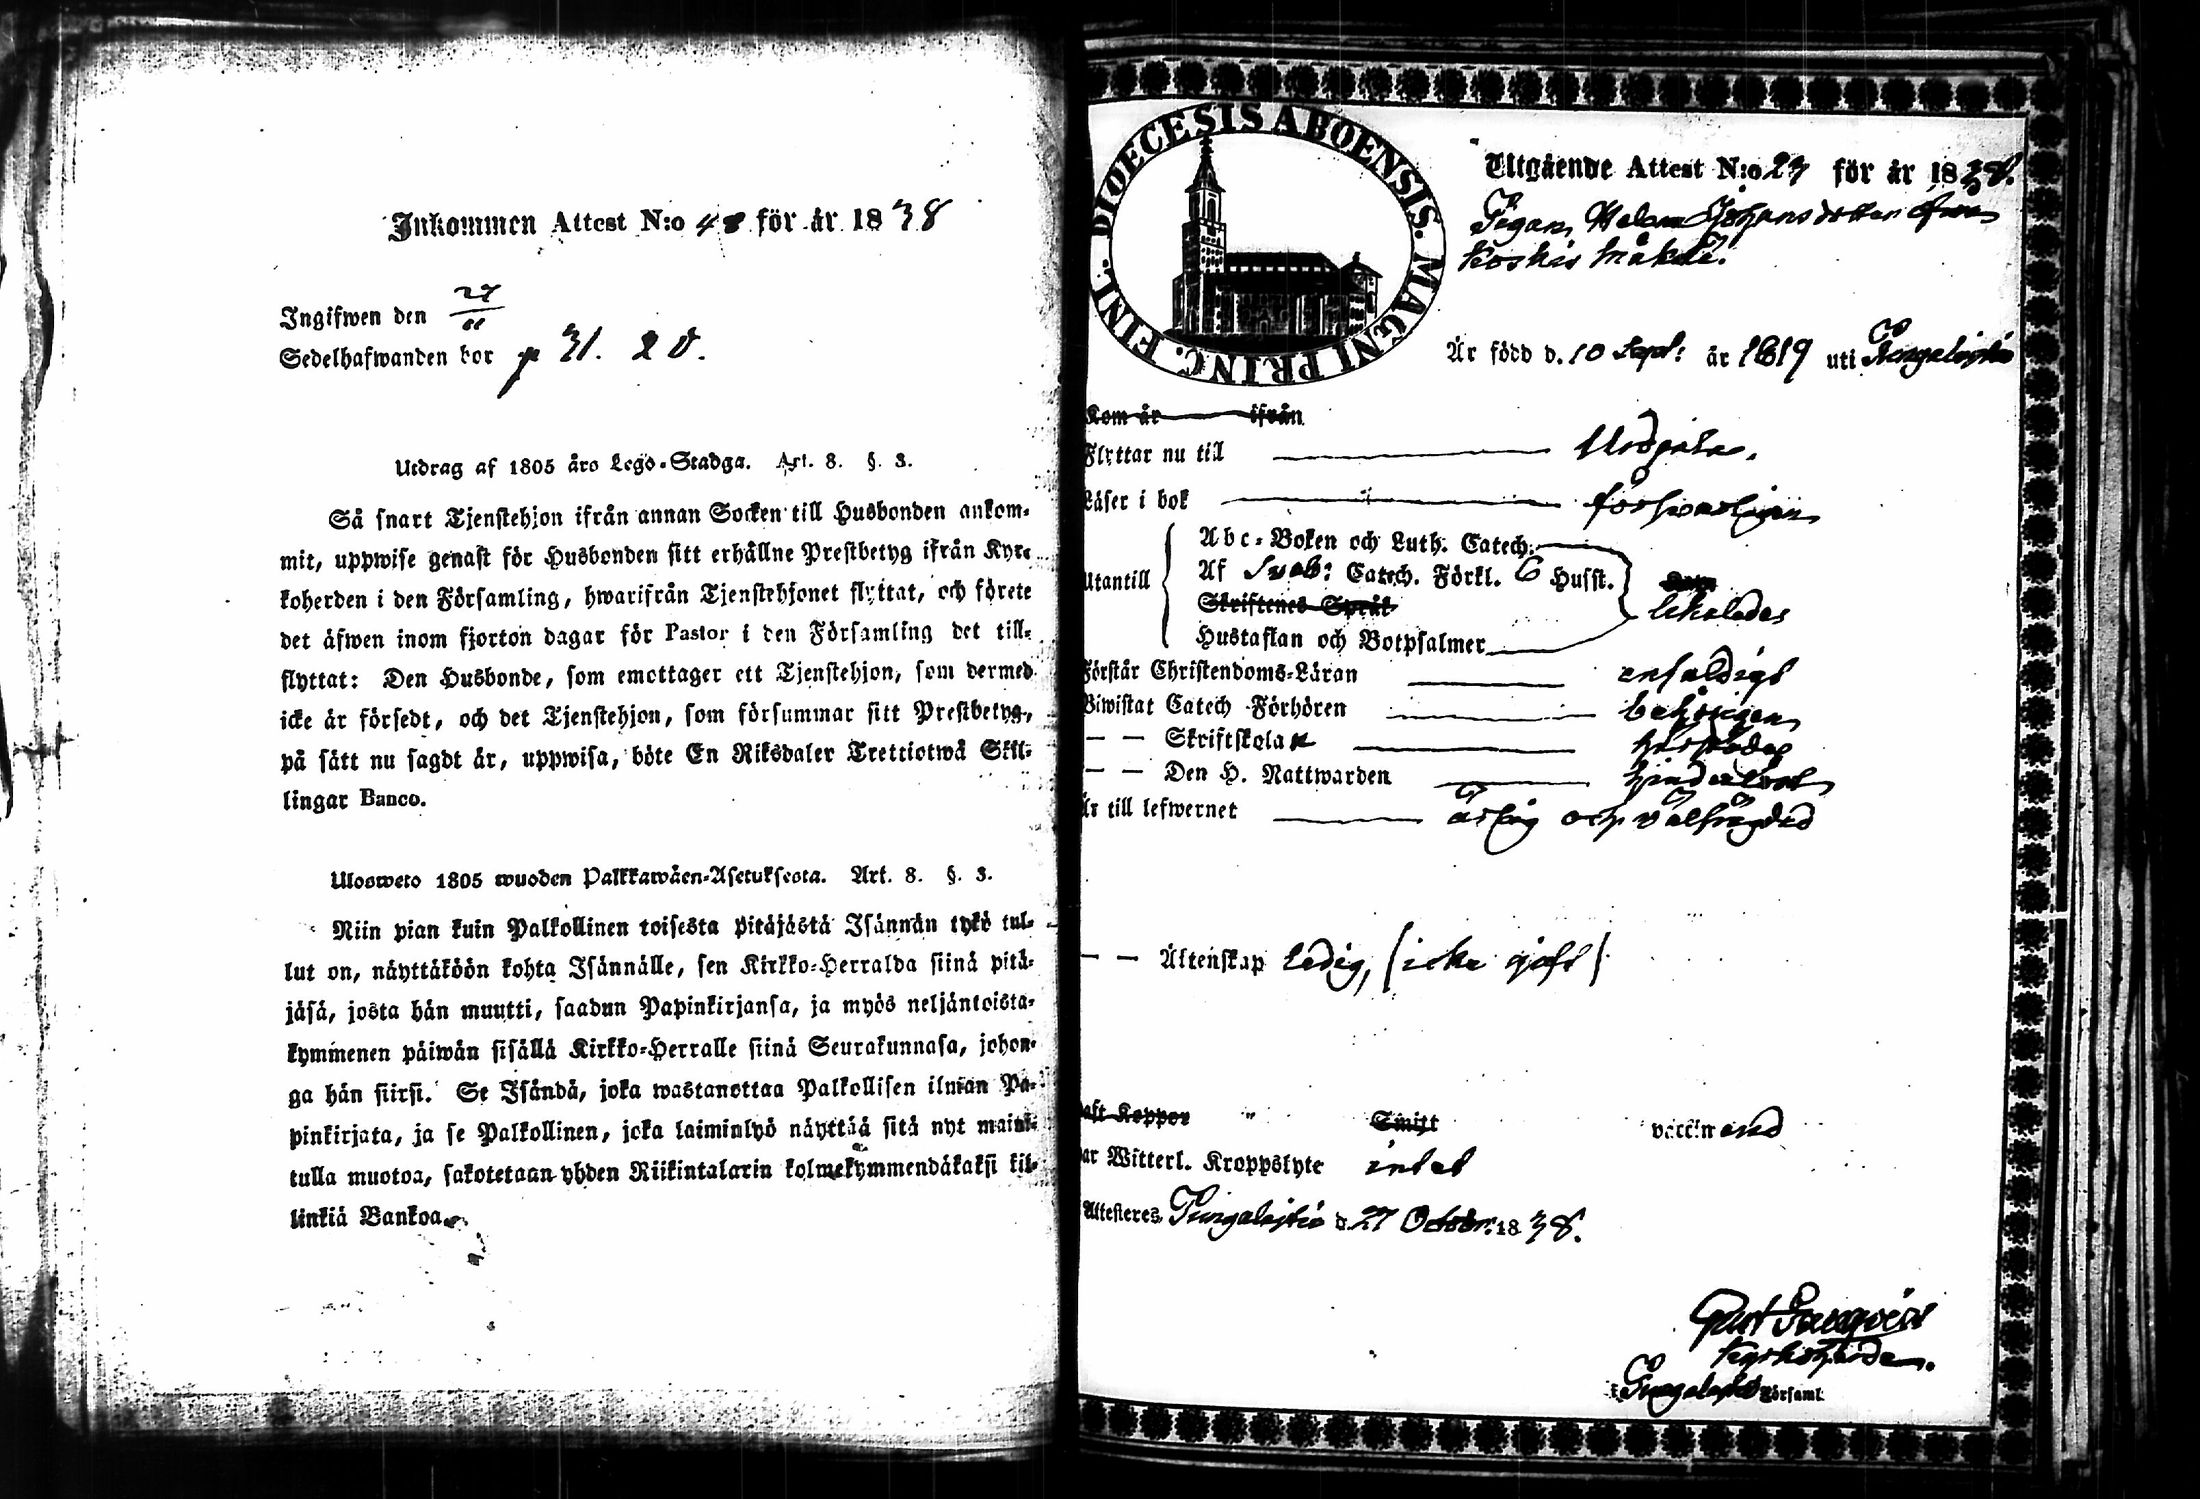 Inkommen Attest N:o 48 för år 1838
Ingifwen den 27/11
Sedelhafwanden bor p 31. 20.
Utdrag af 1805 åro Lego-Stadga. Art. 8. §. 3.
Så snart Tjenstehjon ifrån annan Socken till Husbonden ankom-
mit, uppwise genast för Husbonden sitt erhållne Prestbetyg ifrån Kyr-
koherden i den Församling, hwarifrån Tjenstehjonet flyttat, och förete
det äfwen inom fjorton dagar för Pastor i den Församling det till-
flyttat: Den Husbonde, som emottager ett Tjenstehjon, som dermed
icke är försedt, och det Tjenstehjon, som försummar sitt Prestbetyg,
på sätt nu sagdt är, uppwisa, böte En Riksdaler Trettiotwå Skil-
lingar Banco.
Ulosweto 1805 wuoden Palkkawäen-Asetuksesta. Art. 8. §. 3.
Niin pian kuin Palkollinen toisesta pitäjästä Isännän tykö tul-
lut on, näyttäköön kohta Isännälle, sen Kirkko-Herralda siinä pitä-
jäsä, josta hän muutti, saadun Papinkirjansa, ja myös neljäntoista-
kymmenen päiwän sisällä Kirkko-Herralle siinä Seurakunnasa, johon-
ga hän siirsi. Se Isändä, joka wastanottaa Palkollisen ilman Pa-
pinkirjata, ja se Palkollinen, joka laiminlyö näyttää sitä nyt maini-
tulla muotoa, sakotetaan yhden Riikintalarin kolmekymmendäkaksi kil-
linkiä Bankoa.
DIOECESIS ABOENSIS. MAGNI PRINC. FINL.
Utgående Attest N:o 23 för år 1838.
Pigan, Helena Johansdotter ifrån
Koskis
Är född d. 10 Sept: år 1819 uti Pungalaitio
Kom år ifrån
Flyttar nu till Urdiala.
Läser i bok försvarligen
Abc-Boken och Luth. Catech.
Utantill Af Sveb: Catech. Förkl. 6 Husst.
Skriftenes Språk
Hustaflan och Botpsalmer
Förstår Christendoms-Läran enfaldigt
Biwistat Catech Förhören behörigen
— — Skriftskola
— — Den H. Nattwarden
Är till lefwernet ärlig och välfrägdad
— — Äktenskap ledig, (icke gift)
haft Koppor " Smitt vaccinerad
har Witterl. Kroppslyte intet
Attesteres Pungalaitio d. 27 Octobr. 1838.
Kyrkoherde.
i Pungalaitio Församl.